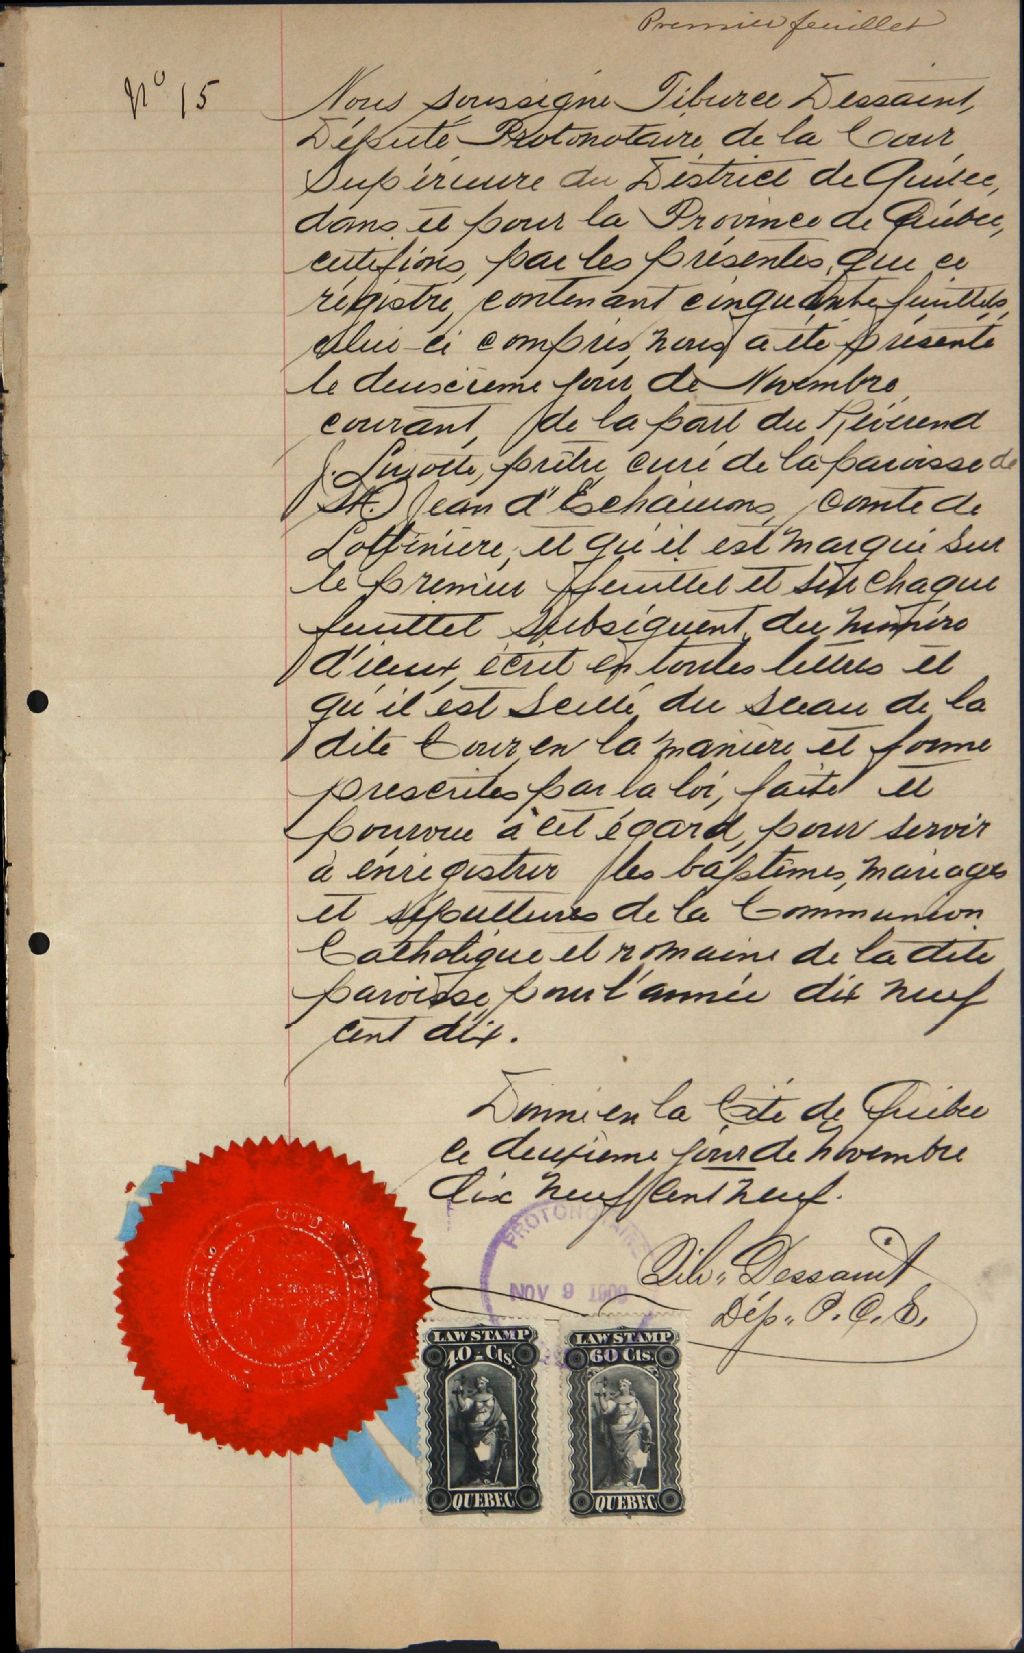 Premier feuillet
No 15
Nous soussigné Tiburce Dessaint,
Député Protonotaire de la Cour
Supérieure du District de Québec,
dans et pour la Province de Québec,
certifions, par les présentes, que ce
régistre, contenant cinquante feuillets,
celui-ci compris, nous a été présenté
le deuxième jour de Novembre
courant, de la part du Révérend
prêtre, curé de la paroisse de
St. Jean d'Eschaillons, comté de
Lotbinière, et qu'il est marqué sur
le premier feuillet et sur chaque
feuillet subséquent du numéro
d'iceux, écrit en toutes lettres et
qu'il est scellé du sceau de la
dite Cour en la manière et forme
prescrites par la loi, faite et
pourvue à cet égard, pour servir
à enregistrer les baptêmes, mariages
et sépultures de la Communion
Catholique et romaine de la dite
paroisse, pour l'année dix neuf
cent dix.
Donné en la Cité de Québec
ce deuxième jour de Novembre
dix neuf cent neuf.
PROTONOTAIRE
NOV 9 1909
Tib.. Dessaint
Dép.. P. C. S.
LAW STAMP
40-Cts.
QUEBEC
LAW STAMP
60 Cts.
QUEBEC